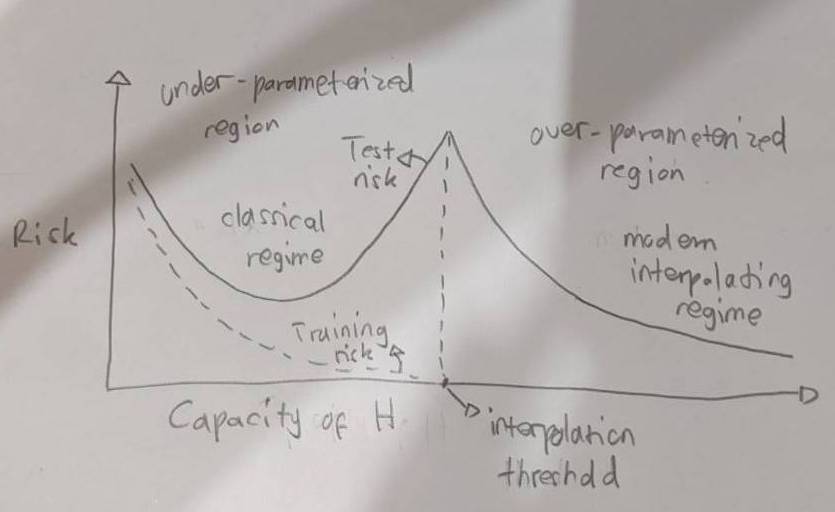 under-parameterized
region
Test
risk
over-parameterized
region
Risk
classical
regime
modern
interpolating
regime
Training
risk
Capacity of H
interpolation
threshold